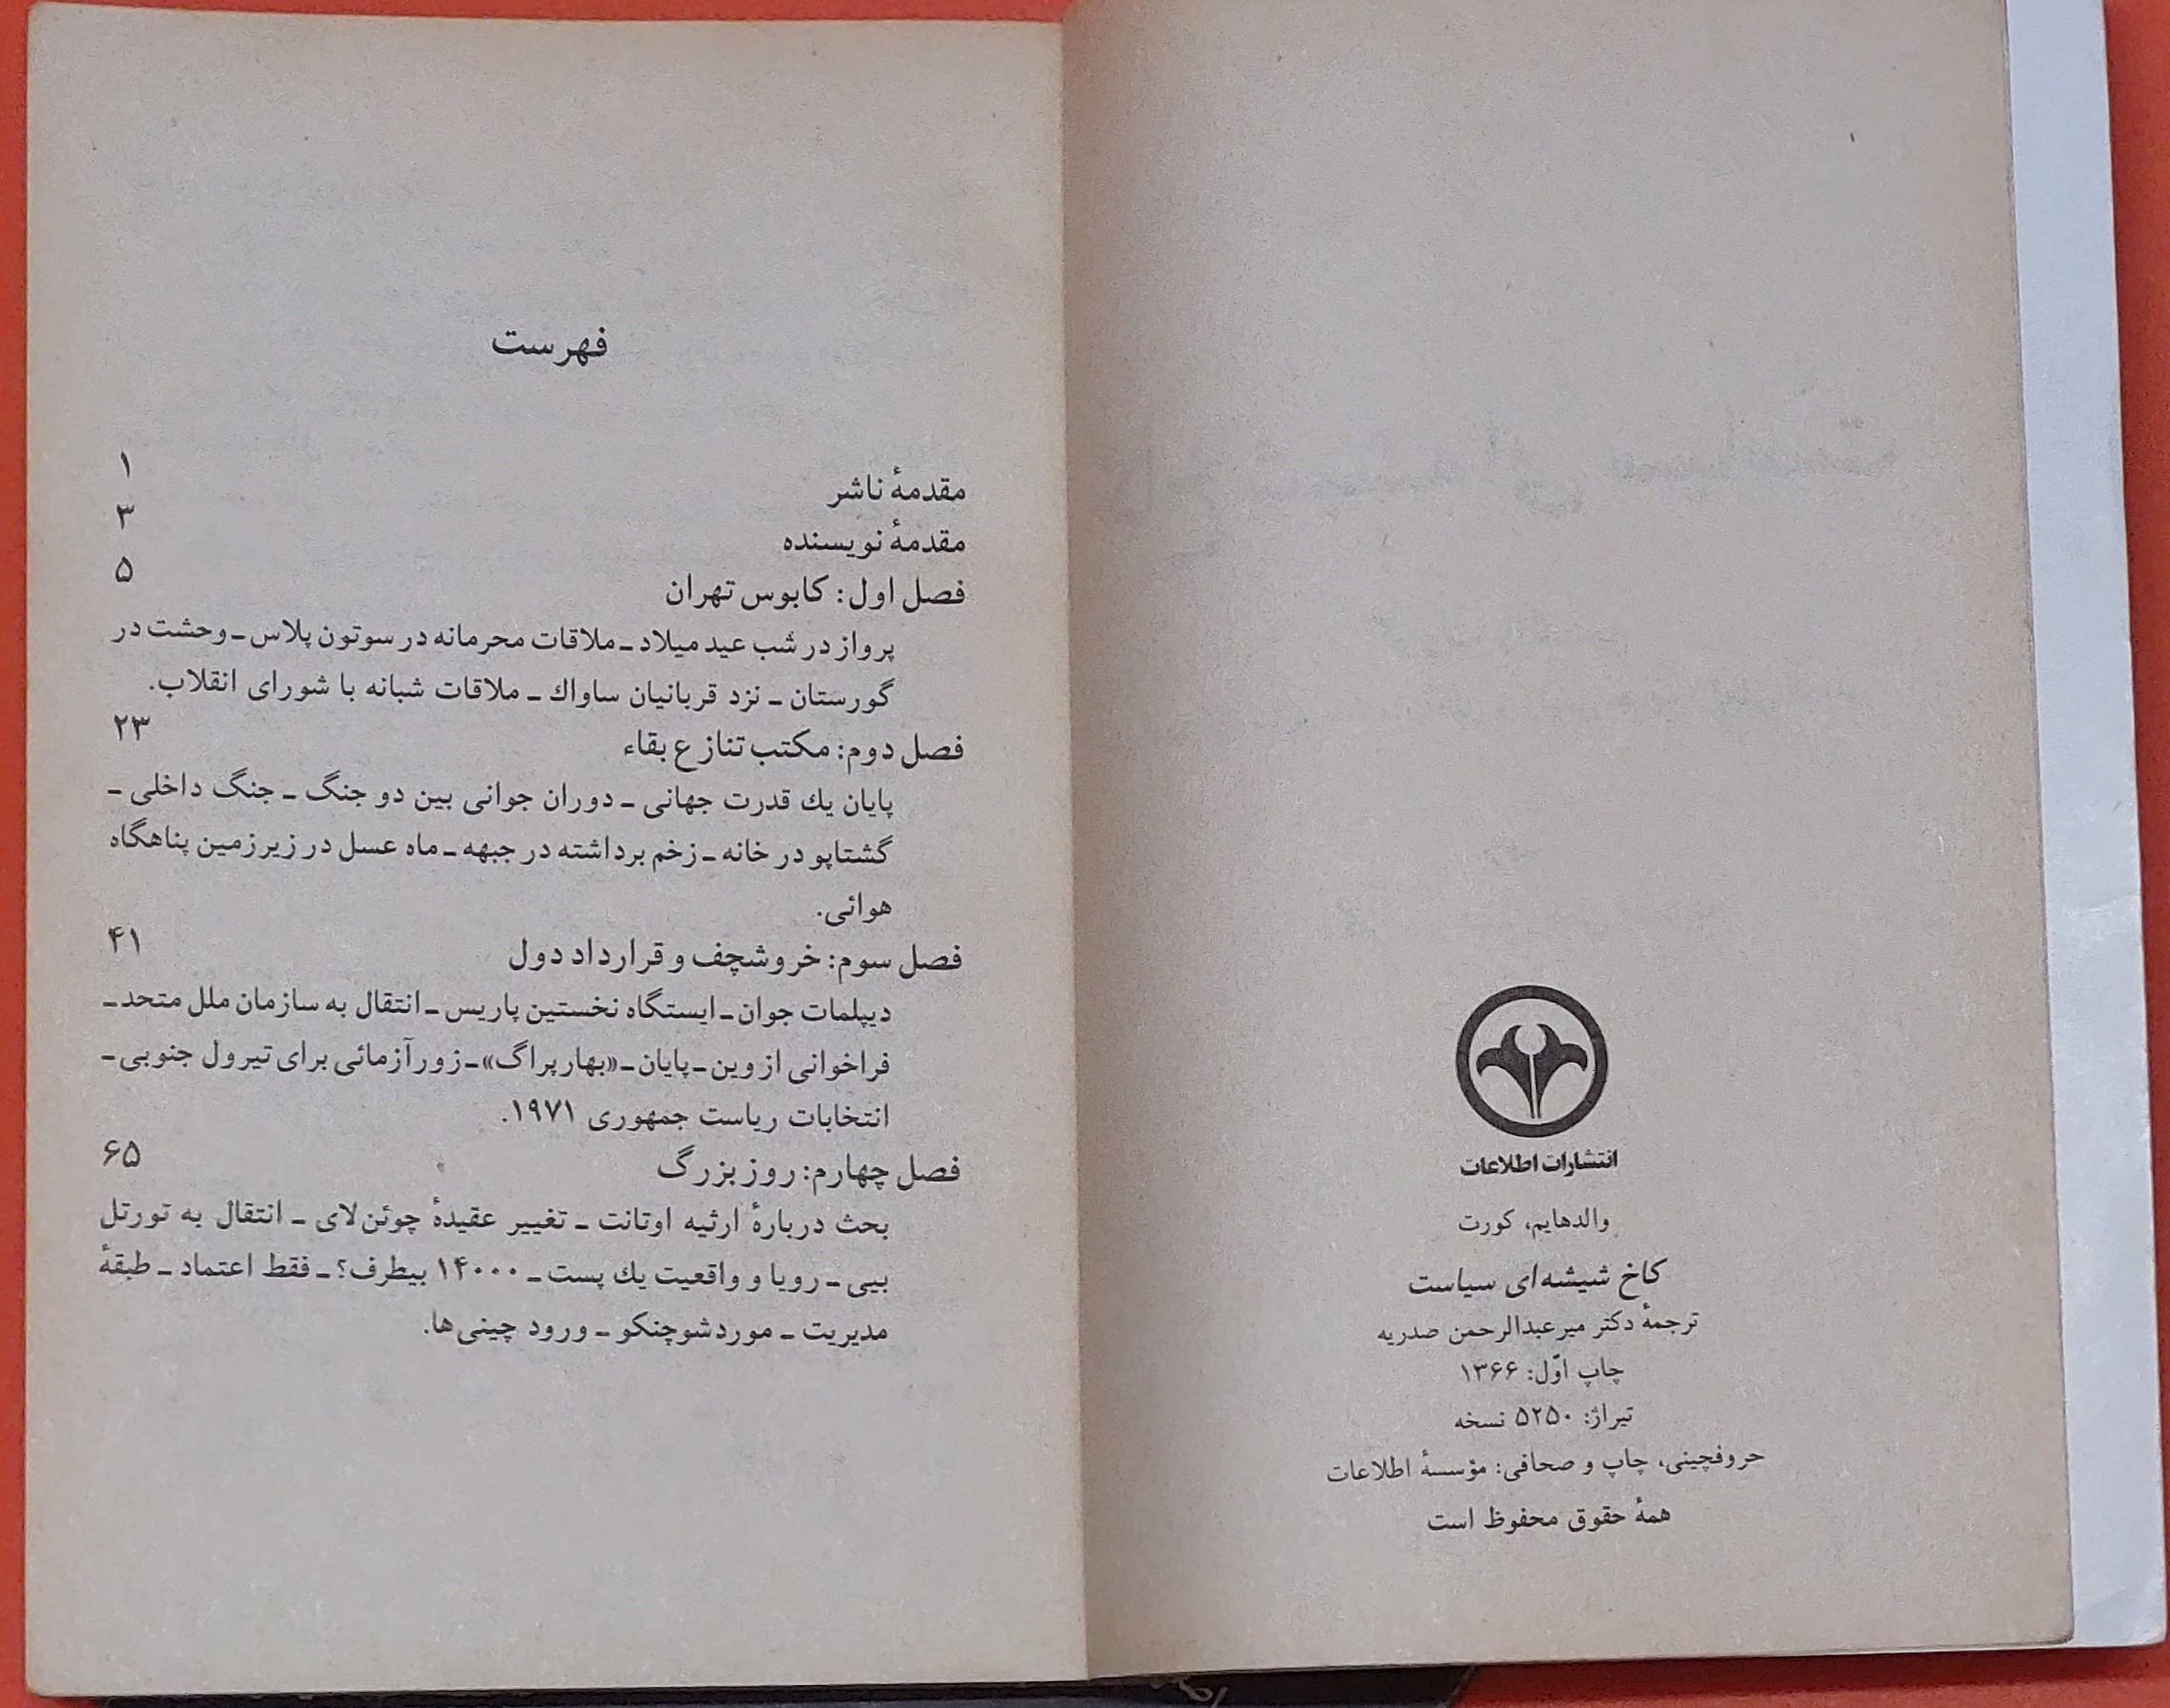 انتشارات اطلاعات
والدهایم، کورت
کاخ شیشه‌ای سیاست
ترجمهٔ دکتر میرعبدالرحمن صدریه
چاپ اوّل: ۱۳۶۶
تیراژ: ۵۲۵۰ نسخه
حروفچینی، چاپ و صحافی: مؤسسهٔ اطلاعات
همهٔ حقوق محفوظ است
فهرست
مقدمهٔ ناشر ۱
مقدمهٔ نویسنده ۳
فصل اول: کابوس تهران ۵
پرواز در شب عید میلاد ـ ملاقات محرمانه در سوتون پلاس ـ وحشت در
گورستان ـ نزد قربانیان ساواك ـ ملاقات شبانه با شورای انقلاب.
فصل دوم: مکتب تنازع بقاء ۲۳
پایان یك قدرت جهانی ـ دوران جوانی بین دو جنگ ـ جنگ داخلی ـ
گشتاپو در خانه ـ زخم برداشته در جبهه ـ ماه عسل در زیرزمین پناهگاه
هوائی.
فصل سوم: خروشچف و قرارداد دول ۴۱
دیپلمات جوان ـ ایستگاه نخستین پاریس ـ انتقال به سازمان ملل متحد ـ
فراخوانی از وین ـ پایان ـ «بهار پراگ» ـ زورآزمائی برای تیرول جنوبی ـ
انتخابات ریاست جمهوری ۱۹۷۱.
فصل چهارم: روز بزرگ ۶۵
بحث دربارهٔ ارثیه اوتانت ـ تغییر عقیدهٔ چوئن‌لای ـ انتقال به تورتل
بیی ـ رویا و واقعیت یك پست ـ ۱۴۰۰۰ بیطرف؟ ـ فقط اعتماد ـ طبقهٔ
مدیریت ـ مورد شوچنکو ـ ورود چینی‌ها.